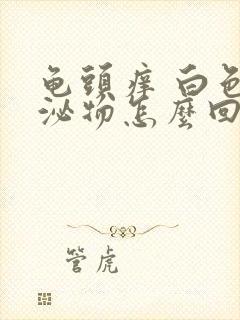 龟頭痒白色
泌物怎麼回
管虎